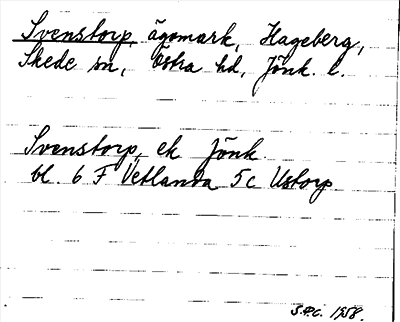 Svenstorp, ägomark, Hageberg,
Skede sn, Östra hd, Jönk. l.
Svenstorp, ek Jönk
bl. 6 F Vetlanda 5c Ustorp
S.P.C. 1958.